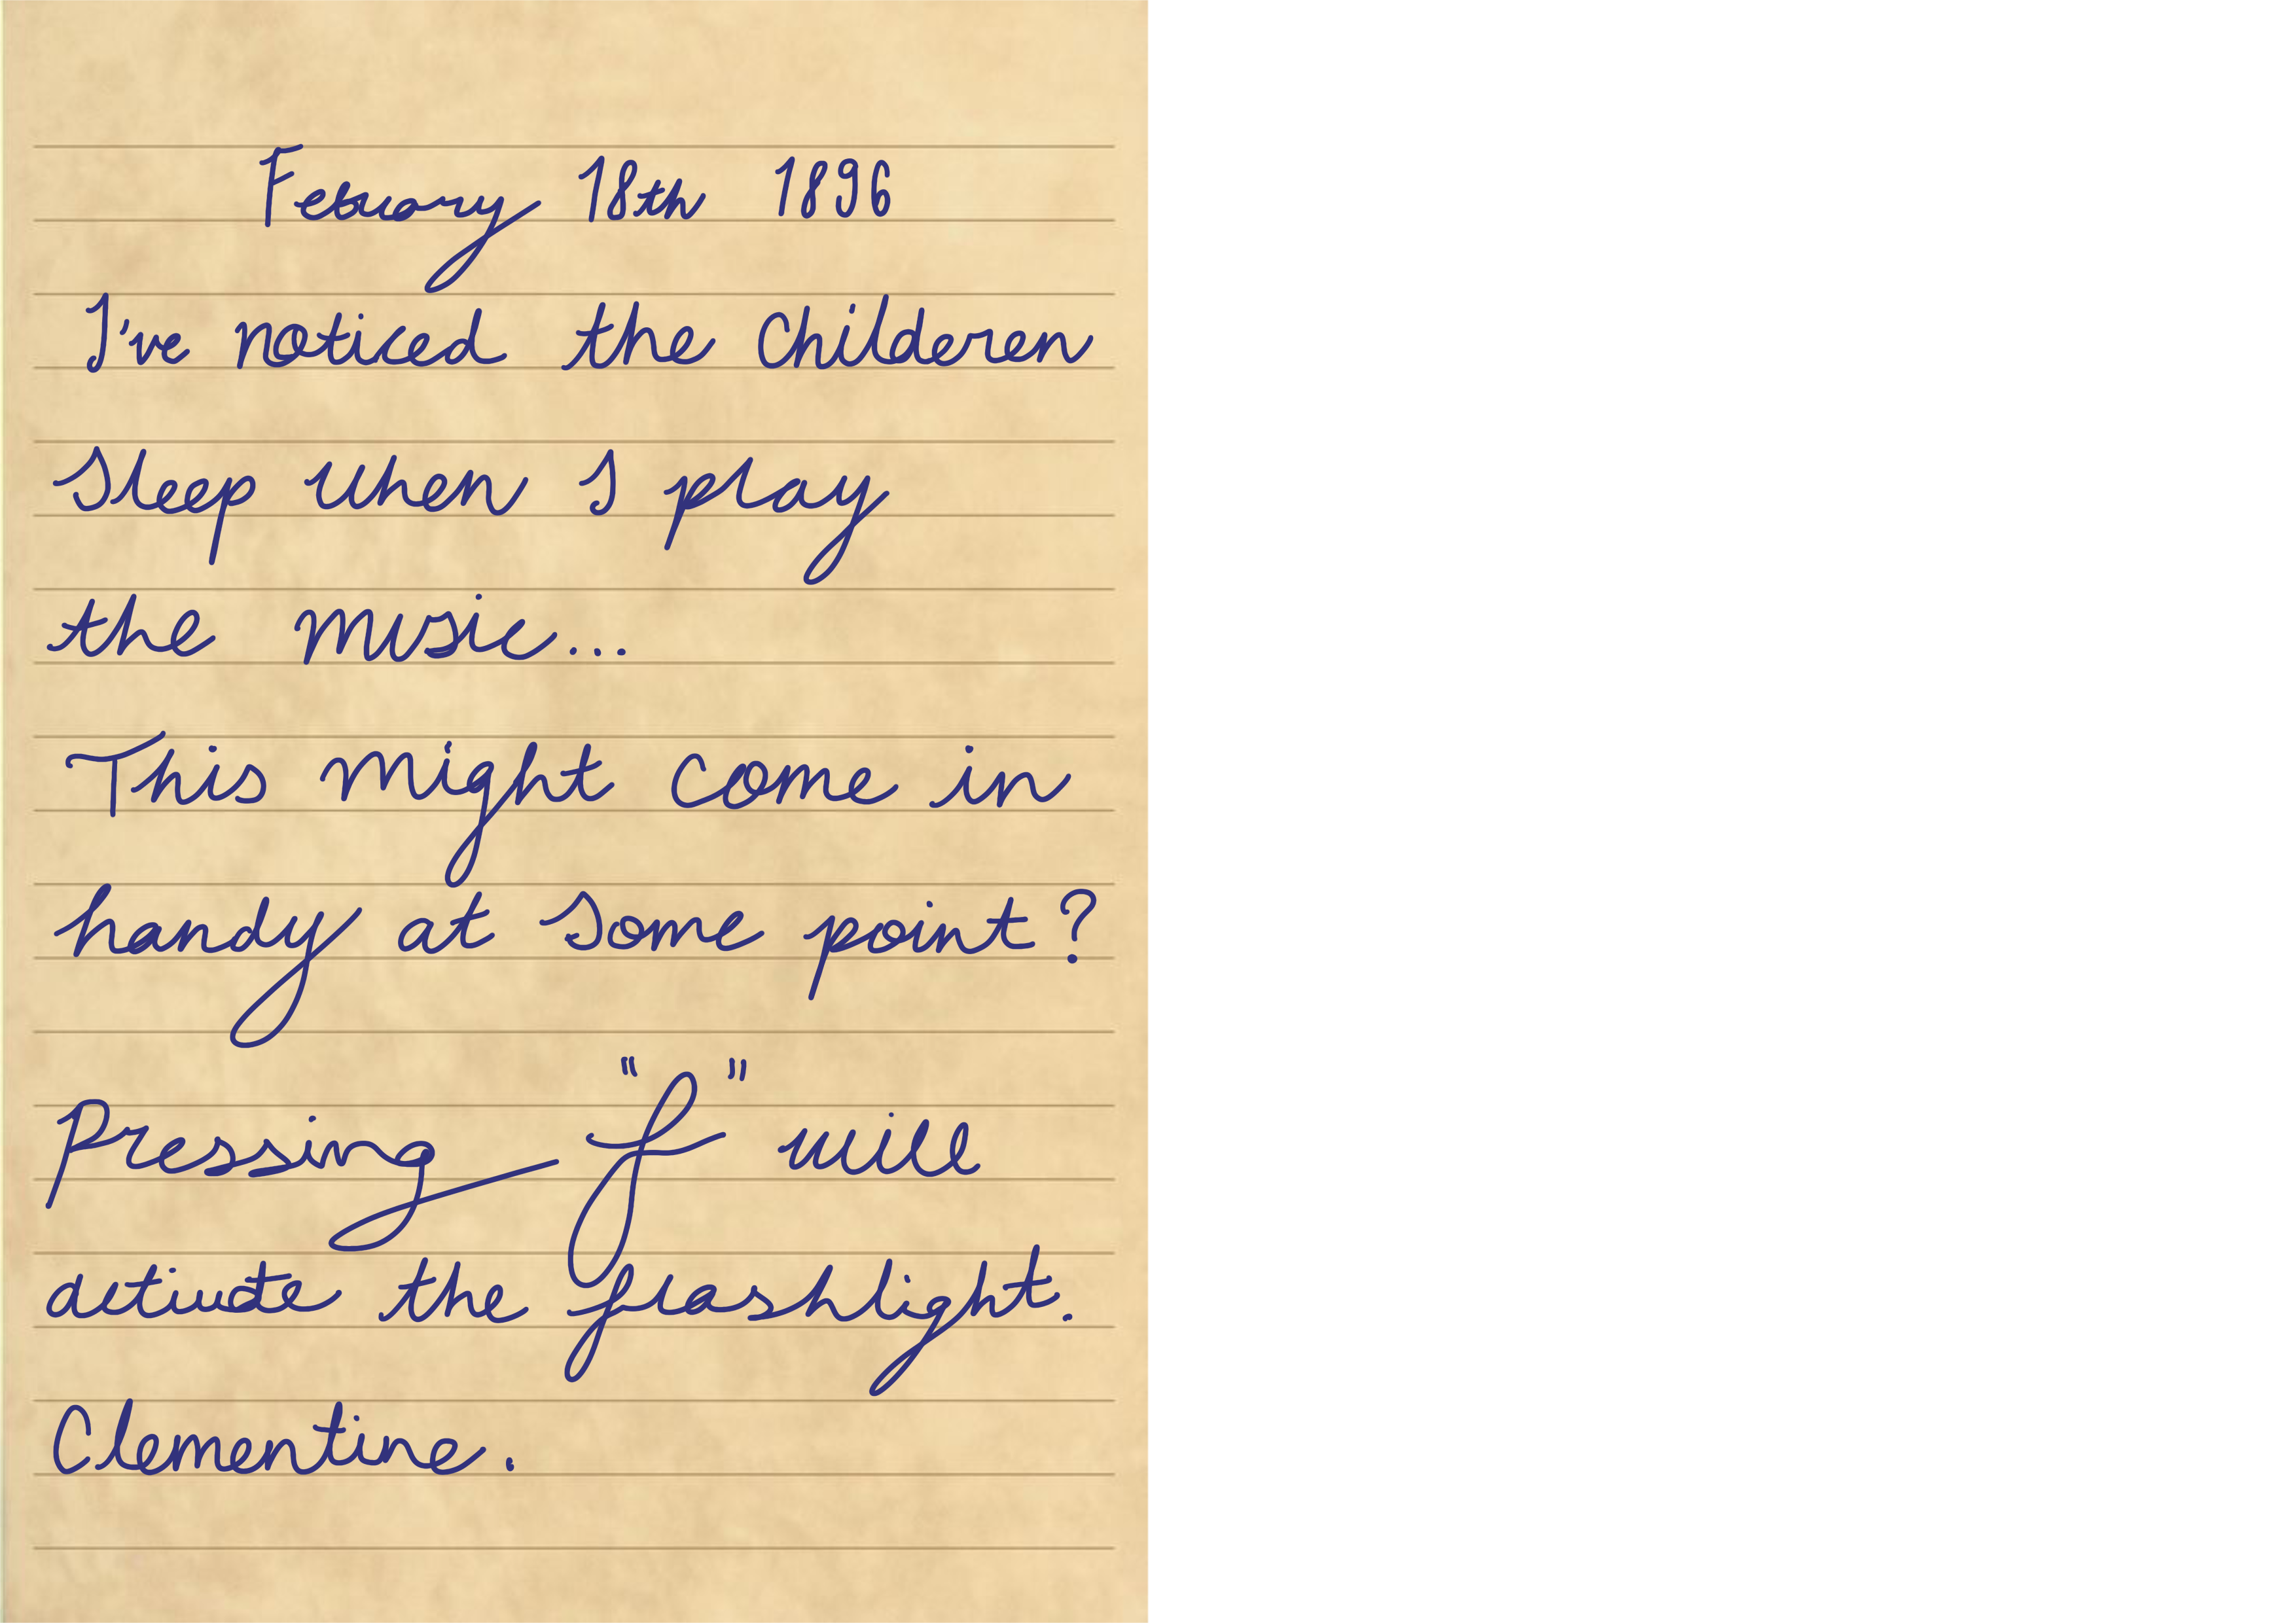 Febuary 18th 1896
I've noticed the Childeren
Sleep when I play
the music...
This might come in
handy at some point?
Pressing "f" will
activate the flashlight.
Clementine.